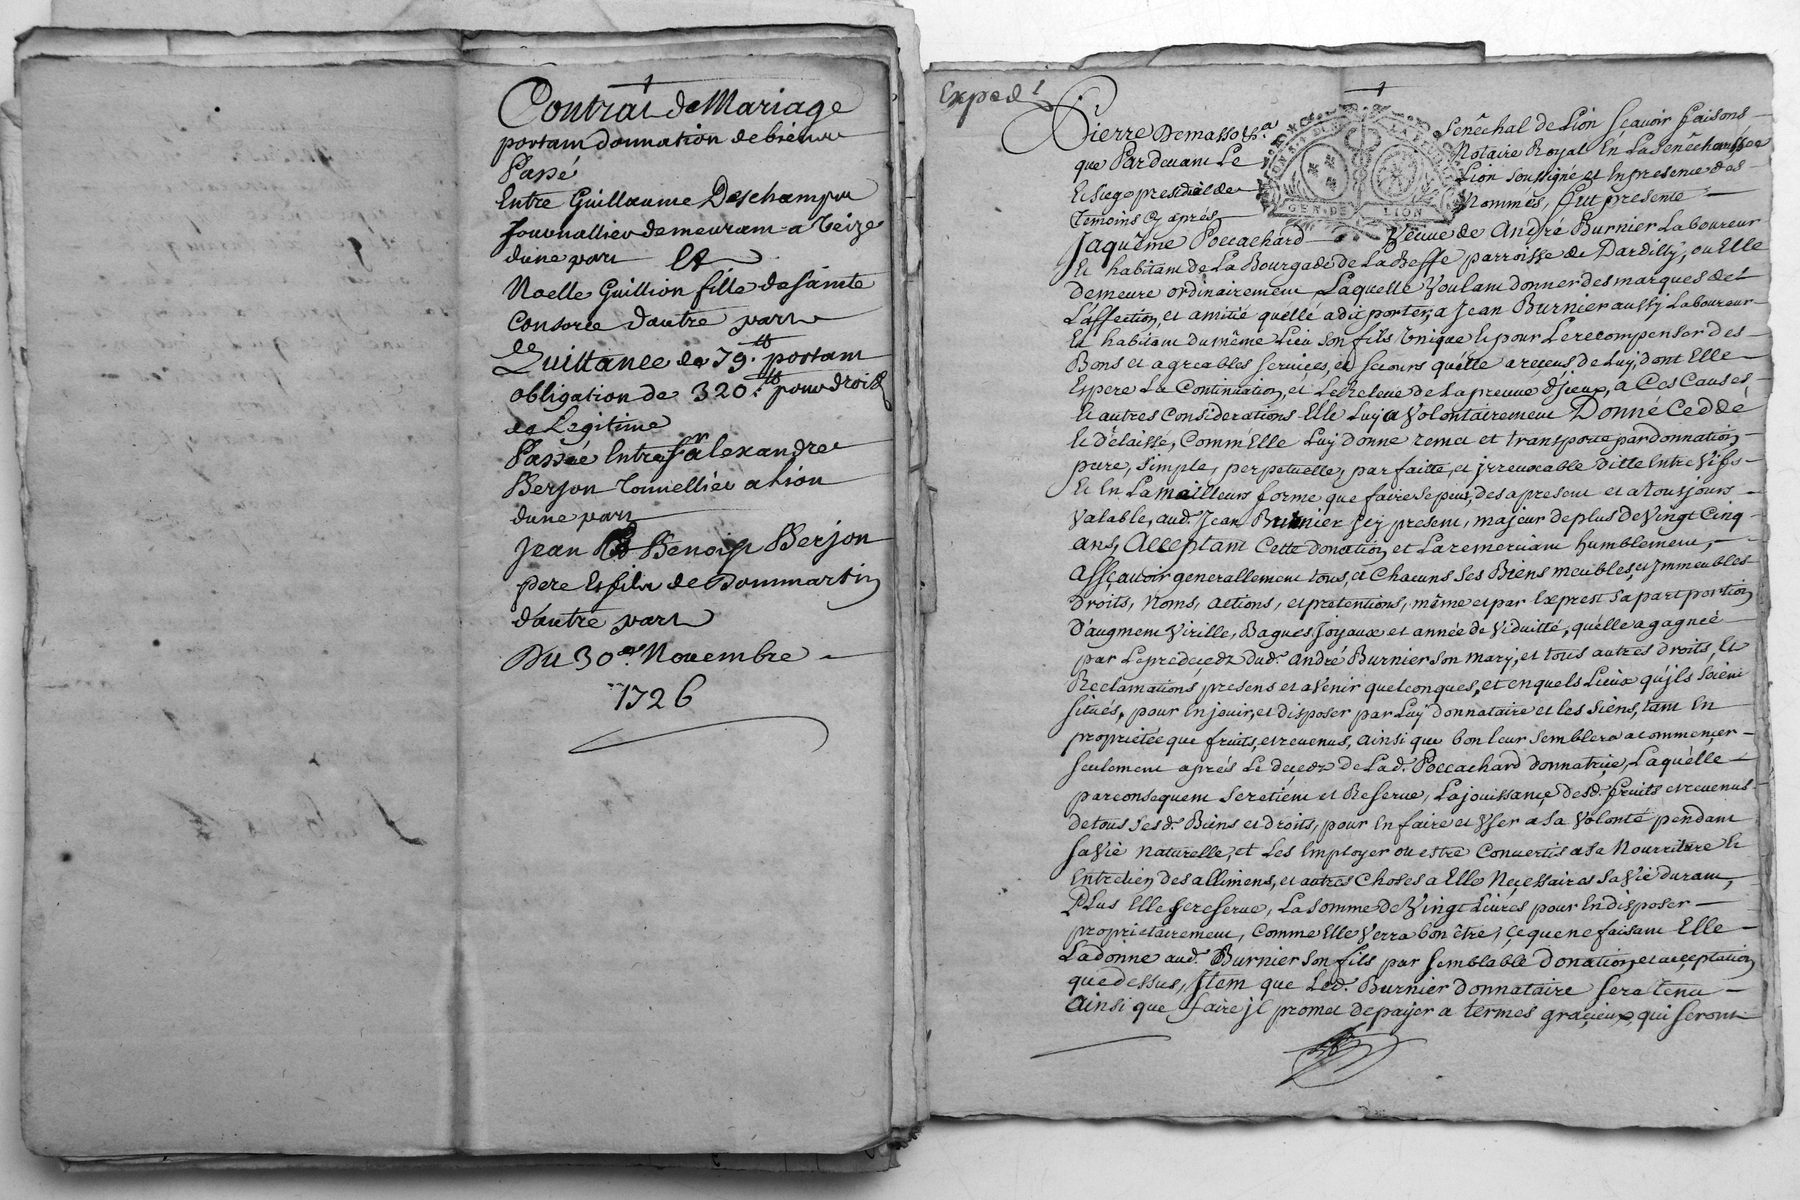 Contrat de Mariage
portant donnation de biens
Passé
Entre Guillaume Deschamps
Journallier demeurant a Teize
dune part Et
Noelle Guillion fille de Sainte
Consorce d'autre part
Quittance de 79.tt portant
obligation de 320.tt pour droit
de Legitime
Passée Entre Sr alexandre
Berjon Tonnellier a Lion
dune part
Jean Benoist Berjon
pere Et fils de Dommartin
d'autre part
Du 30.e Novembre
1726
Exped.é
Pierre Demasso &.a Senêchal de Lion Sçavoir faisons
que Pardevant Le Notaire Royal En La Senêchaussée
Et Siege presidial de Lion Soussigné et En presence des
Temoins Cy aprés Nommés, fut presente
GEN. DE LION
Jaquême Poccachard Veuve de André Burnier Laboureur
Et habitant de La Bourgade de La Beffe parroisse de Dardilly, ou Elle
demeure ordinairement Laquelle Voulant donner des marques de
L'affection, et amitié quélle a dit porter, a Jean Burnier aussy Laboureur
Et habitant du même Lieu Son fils Unique Et pour Le recompenser des
Bons et agreables Services, et Secours quélle a receus de Luy, dont Elle
Espere La Continuation, et Le Releve de La preuve d'jceux, a Ces Causes,
Et autres Considerations Elle Luy a Volontairement Donné Ceddé
Et Délaissé, Comm'Elle Luy donne remet et transporte par donnation
pure, Simple, perpetuelle, parfaitte, et jrrevocable ditte Entre Vifs
Et En La meilleure forme que faire Se peut, des apresent et a tousjours
Valable, aud. Jean Burnier jcy present, majeur de plus de Vingt Cinq
ans, Acceptant Cette donation, et La remerciant humblement,
Assçavoir generallement tous, et Chacuns Ses Biens meubles, et Jmmeubles
Droits, Noms, Actions, et pretentions, même et par Exprest Sa part portion
D'augment Virille, Bagues Joyaux et année de Viduitté, quélle a gagnée
par Le predecedz dud. André Burnier Son mary, et tous autres droits, Et
Reclamations presens et avenir quelconques, et en quels Lieux qu'jls Soient
Situés, pour En jouir, et disposer par Luy donnataire et les Siens, tant En
proprietée que fruits, et revenus, ainsi que bon leur Semblera a commencer
Seulement aprés Le decedz de Lad. Poccachard donnatrice, Laquélle
par consequent Se retient et Reserve, La jouissance desd. fruits et revenus
de tous Sesd. Biens et droits, pour En faire et User a Sa Volonté pendant
Sa Vie Naturelle, et Les Employer ou estre Convertis a Sa Nourriture Et
Entretien des allimens, et autres Choses a Elle Necessaires Sa Vie durant,
Plus Elle Se reserve, La Somme de Vingt Livres pour En disposer
proprietairement, Comme Elle Verra bon être, Ce que ne faisant Elle
La donne aud. Burnier Son fils par Semblable Donation, et acceptation
que dessus, Jtem que Led. Burnier Donnataire Sera tenu
Ainsi que faire jl promet de payer a termes gracieux, qui Seront